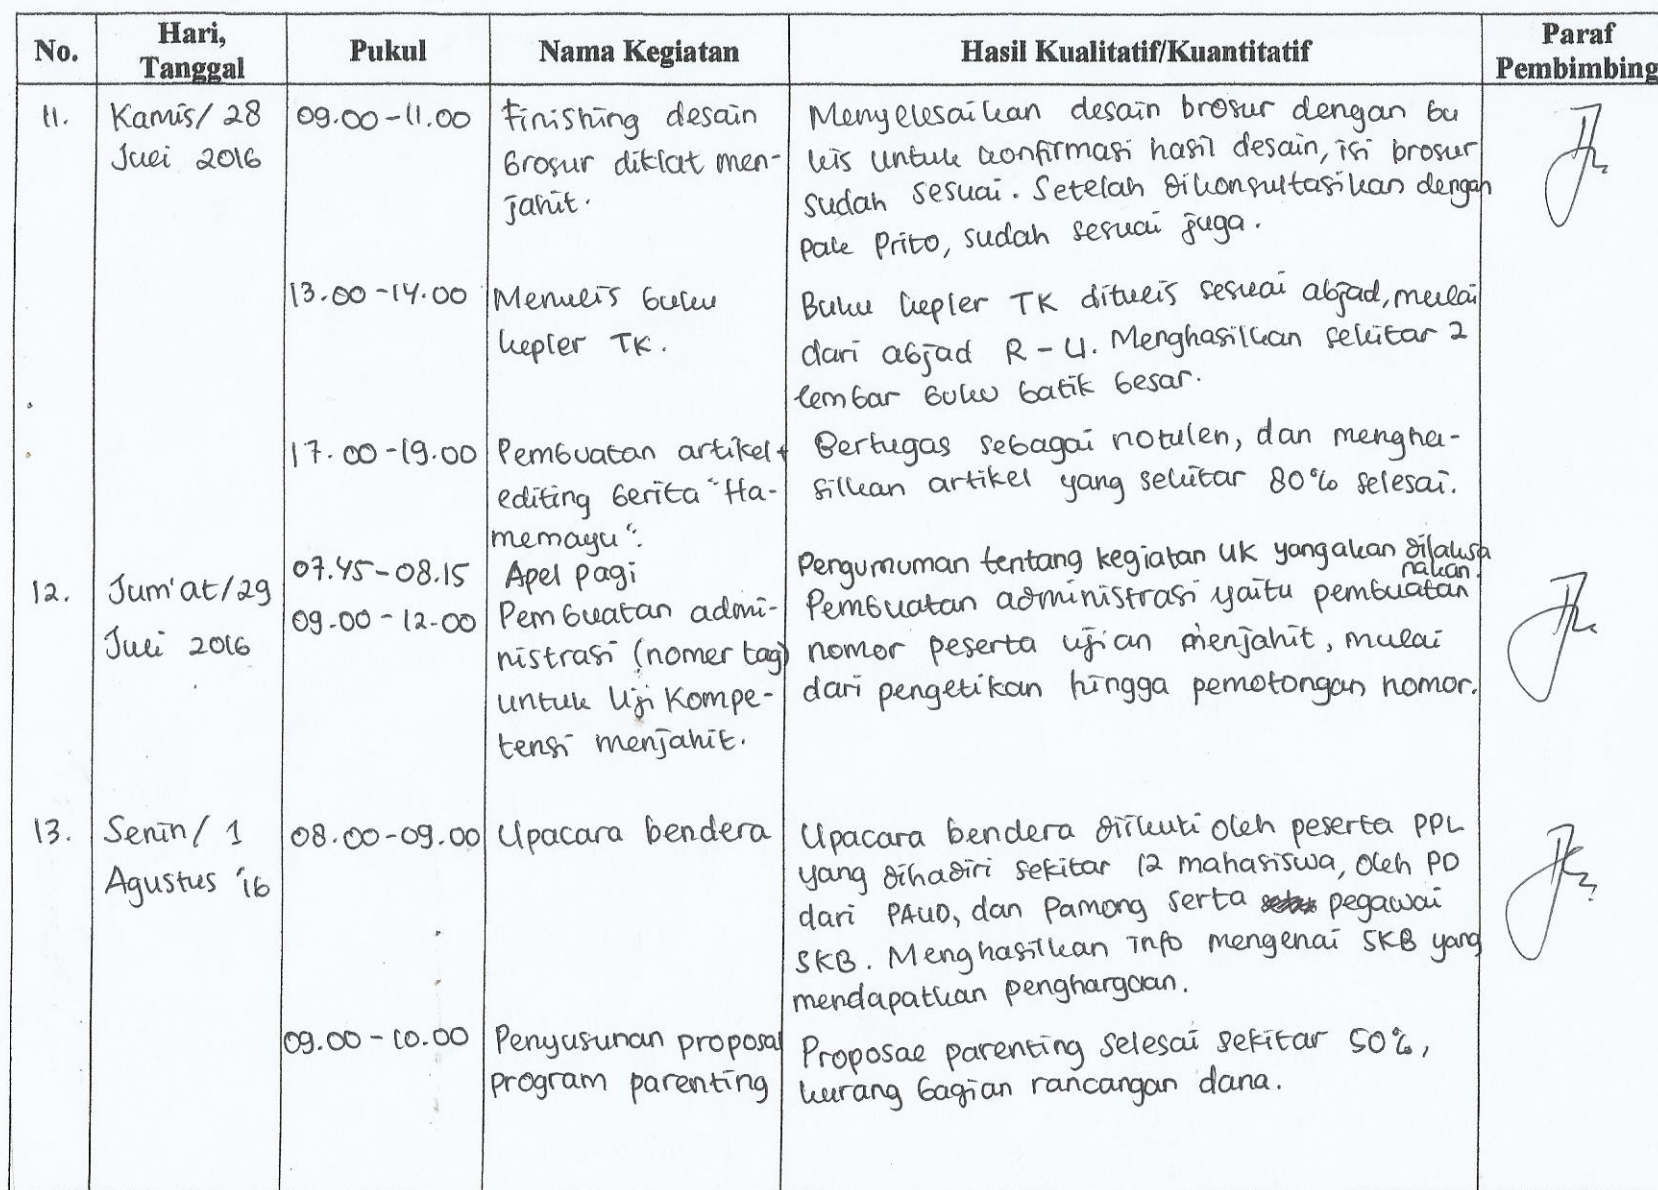 No. Hari, Tanggal Pukul Nama Kegiatan Hasil Kualitatif/Kuantitatif Paraf Pembimbing
11.
Kamis/ 28
Juli 2016
09.00-11.00
Finishing desain
brosur diklat men-
jahit.
Menyelesaikan desain brosur dengan bu
lis untuk konfirmasi hasil desain, isi brosur
sudah sesuai. Setelah dikonsultasikan dengan
pak Prito, sudah sesuai juga.
13.00-14.00
Menulis buku
kepler TK.
Buku kepler TK ditulis sesuai abjad, mulai
dari abjad R-U. Menghasilkan sekitar 2
lembar buku batik besar.
17.00-19.00
Pembuatan artikel +
editing berita "Ha-
memayu".
Bertugas sebagai notulen, dan mengha-
silkan artikel yang sekitar 80% selesai.
12.
Jum'at/29
Juli 2016
07.45-08.15
Apel pagi
Pengumuman tentang kegiatan UK yang akan dilaksa
nakan.
09.00-12.00
Pembuatan admi-
nistrasi (nomer tag)
untuk Uji Kompe-
tensi menjahit.
Pembuatan administrasi yaitu pembuatan
nomor peserta ujian menjahit, mulai
dari pengetikan hingga pemotongan nomor.
13.
Senin/ 1
Agustus '16
08.00-09.00
Upacara bendera
Upacara bendera diikuti oleh peserta PPL
yang dihadiri sekitar 12 mahasiswa, oleh PD
dari PAUD, dan Pamong serta pegawai
SKB. Menghasilkan info mengenai SKB yang
mendapatkan penghargaan.
09.00-10.00
Penyusunan proposal
program parenting
Proposal parenting selesai sekitar 50%,
kurang bagian rancangan dana.